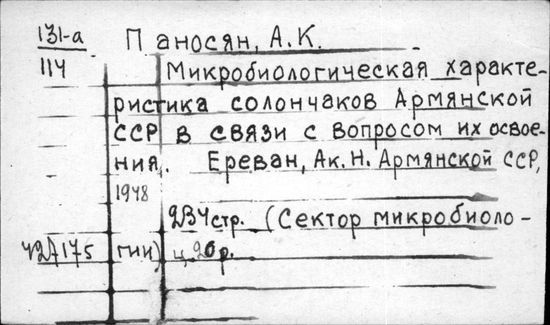 131-а Паносян, А.К.
114 Микробиологическая характе-
ристика солончаков Армянской
ССР в связи с вопросом их освое-
ния. Ереван, Ак.Н. Армянской ССР,
1948
234стр. (Сектор микробиоло-
427175 гии) ц. 20р.